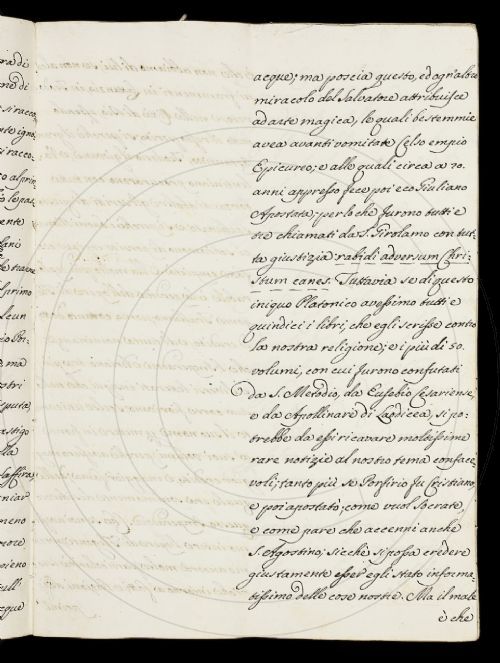 acque; ma poscia questo, ed ogn'altro
miracolo del Salvatore attribuisce
ad arte magica, le quali bestemmie
avea avanti vomitate Celso empio
Epicureo; e alle quali circa a 70.
anni appresso fece poi eco Giuliano
Apostata; perlochè furono tutti e
tre chiamati da S. Girolamo con tut-
ta giustizia rabidi adversum Chri-
stum canes. Tuttavia se di questo
iniquo Platonico avessimo tutti e
quindici i libri, che egli scrisse contro
la nostra religione; e i più di 50.
volumi, con cui furono confutati
da S. Metodio, da Eusebio Cesariense,
e da Apollinare di Laodicea, si po-
trebbe da essi ricavare moltissime
rare notizie al nostro tema conface-
voli; tanto più se Porfirio fu Cristiano,
e poi apostatò; come vuol Socrate,
e come pare che accenni anche
S. Agostino; sicchè si possa credere
giustamente esser egli stato informa-
tissimo delle cose nostre. Ma il male
è che